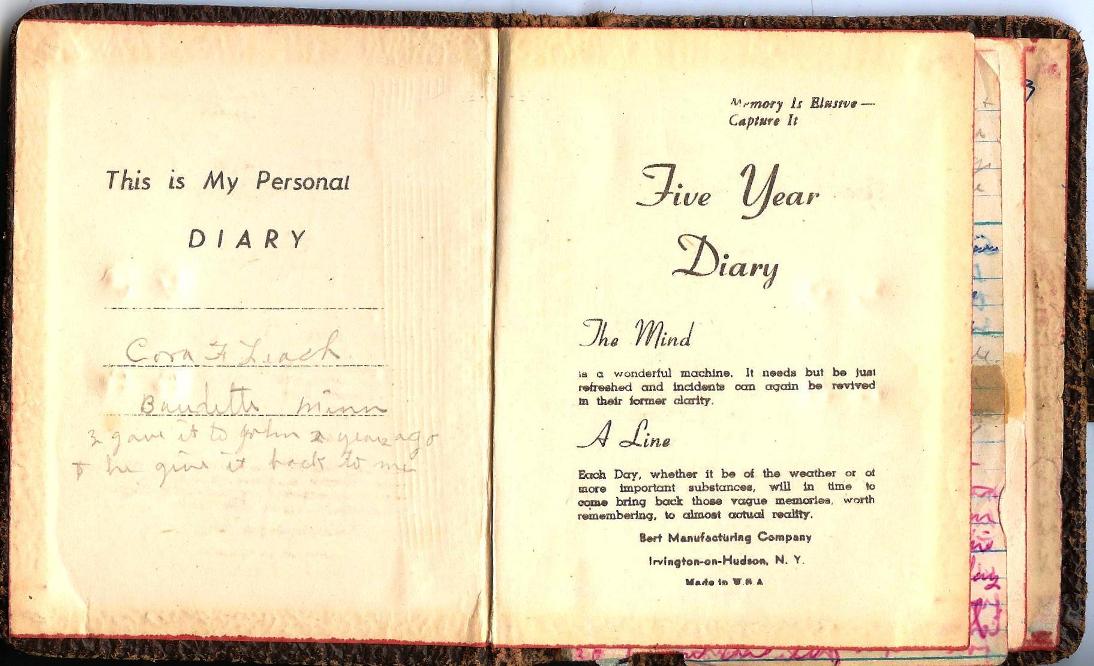 This is My Personal
DIARY
Cora F Leach
Baudette Minn
I gave it to John 2 years ago
& he give it back to me
Memory Is Elusive —
Capture It
Five Year
Diary
The Mind
is a wonderful machine. It needs but be just
refreshed and incidents can again be revived
in their former clarity.
A Line
Each Day, whether it be of the weather or of
more important substances, will in time to
come bring back those vague memories, worth
remembering, to almost actual reality.
Bert Manufacturing Company
Irvington-on-Hudson, N. Y.
Made in U S A